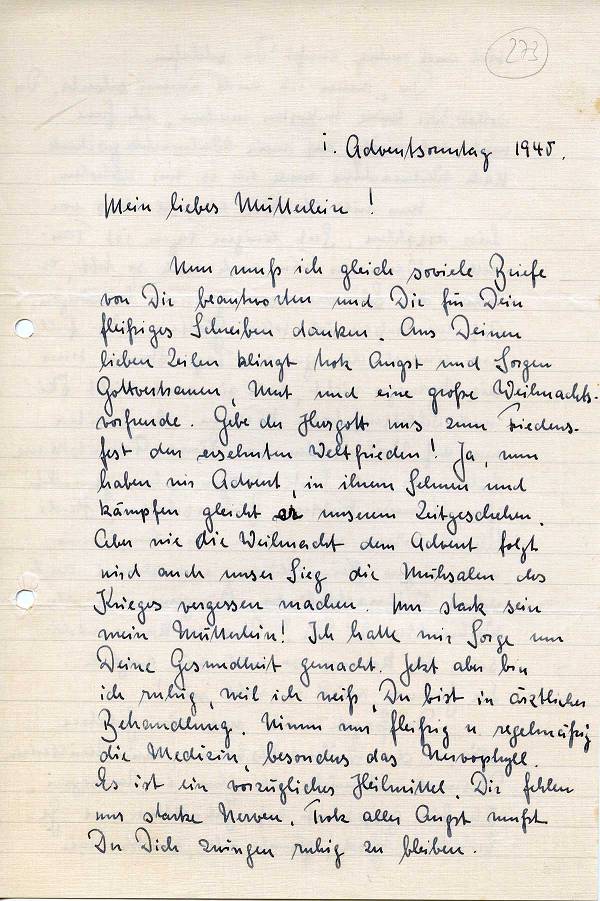 273
1. Adventsonntag 1940.
Mein liebes Mütterlein!
Nun muß ich gleich soviele Briefe
von Dir beantworten und Dir für Dein
fleißiges Schreiben danken. Aus Deinen
lieben Zeilen klingt trotz Angst und Sorgen
Gottvertrauen, Mut und eine große Weihnachts-
vorfreude. Gebe der Herrgott uns zum Friedens-
fest den ersehnten Weltfrieden! Ja, nun
haben wir Advent, in ihrem Sehnen und
kämpfen gleicht er unserem Zeitgeschehen.
Aber wie die Weihnacht dem Advent folgt
wird auch unser Sieg die Mühsalen des
Krieges vergessen machen. Nur stark sein
mein Mütterlein! Ich hatte mir Sorge um
Deine Gesundheit gemacht. Jetzt aber bin
ich ruhig, weil ich weiß, Du bist in ärztlicher
Behandlung. Nimm nur fleißig u regelmäßig
die Medizin, besonders das Nervophyll.
Es ist ein vorzügliches Heilmittel. Dir fehlen
nur starke Nerven. Trotz aller Angst mußt
Du Dich zwingen ruhig zu bleiben.